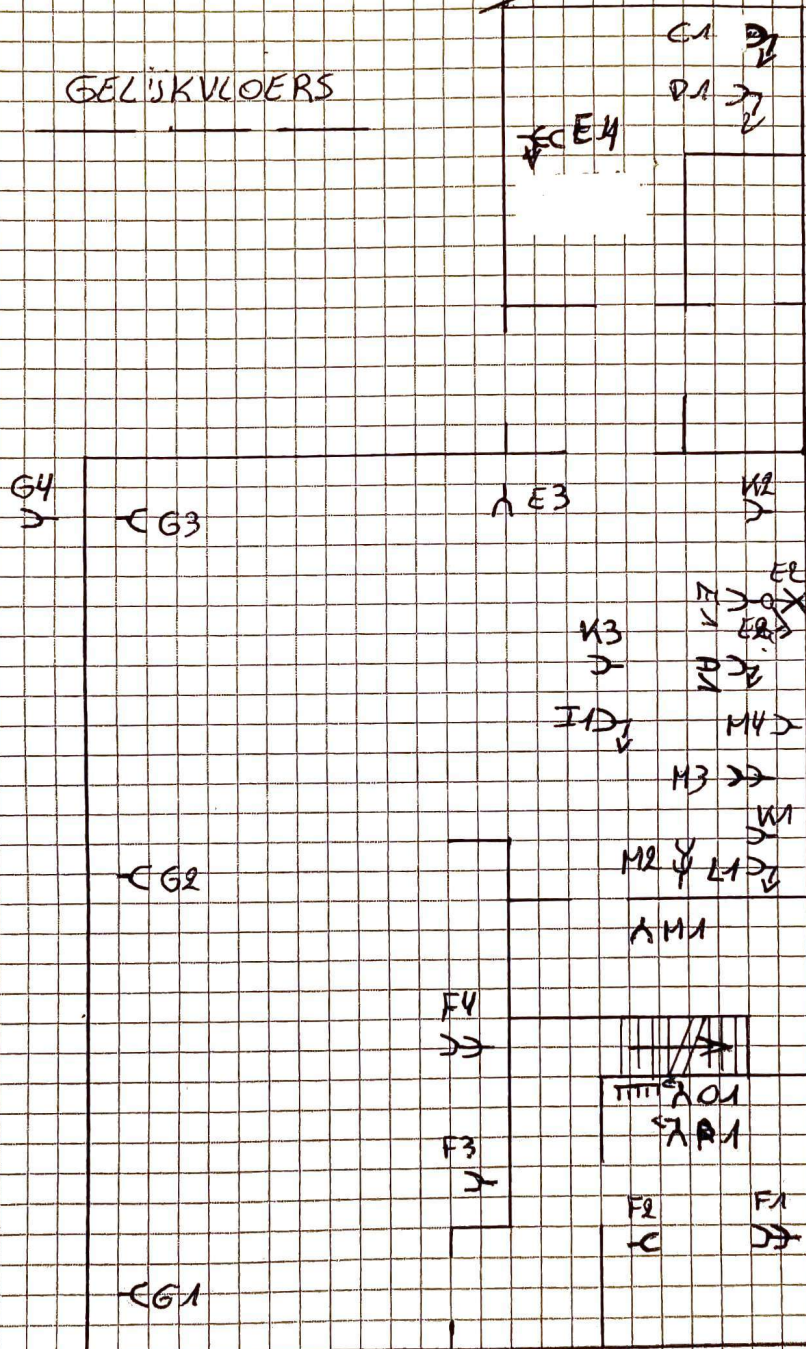 C1
GELIJKVLOERS
D1
E4
G4
G3
E3
K2
E2
E1
K3
A1
I1
M4
M3
K1
M2
L1
G2
M1
F4
O1
F3
F2
F1
G1